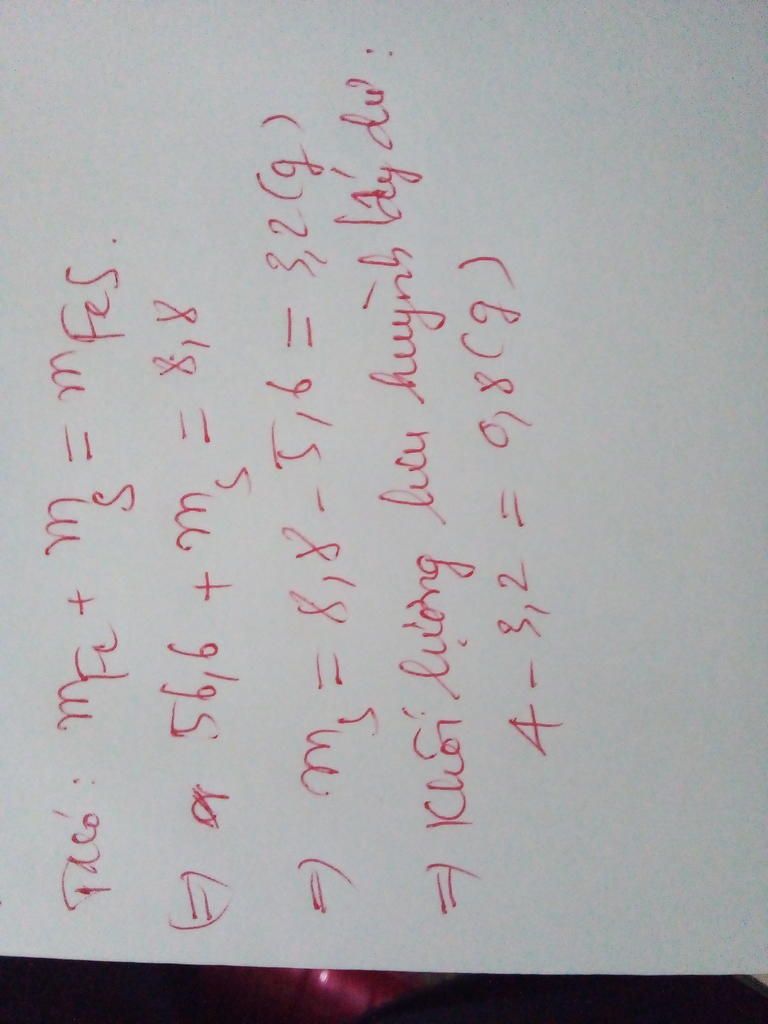 Ta có: mFe + mS = mFeS.
(=) 56,6 + mS = 8,8
=) mS = 8,8 - 5,6 = 3,2(g)
=) Khối lượng lưu huỳnh lấy dư:
4 - 3,2 = 0,8(g)